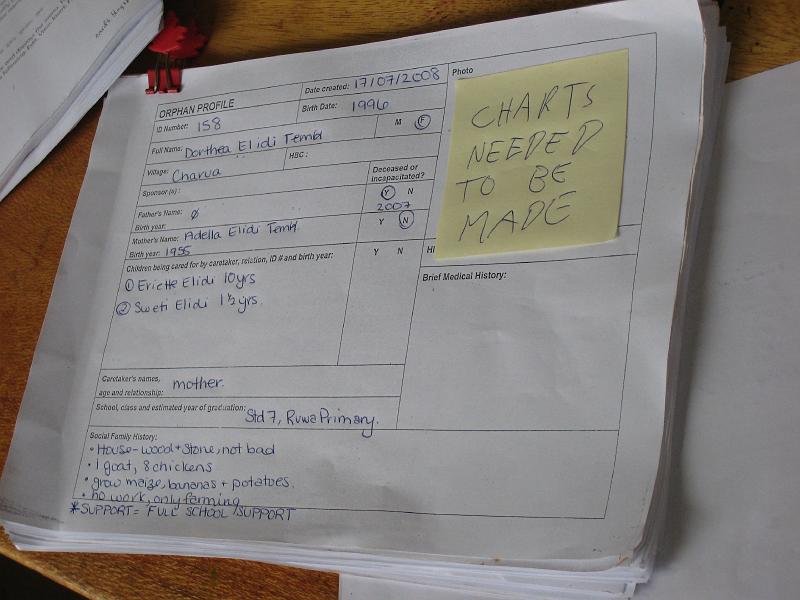 ORPHAN PROFILE
Date created: 17/07/2008
Photo
ID Number: 158
Birth Date: 1996
Full Name: Dorthea Elidi Temba
M F
Village: Charua
HBC:
Sponsor(s):
Deceased or
incapacitated?
Father's Name: ø
Y N
Birth year:
2007
Mother's Name: Adella Elidi Temba
Y N
Birth year: 1955
Children being cared for by caretaker, relation, ID # and birth year:
Y N
HI
① Eriette Elidi 10yrs
② Sweti Elidi 1½ yrs.
Brief Medical History:
Caretaker's names,
age and relationship: mother.
School, class and estimated year of graduation: Std 7, Ruwa Primary.
Social Family History:
• House - wood + stone, not bad
• 1 goat, 8 chickens
• grow maize, bananas + potatoes.
• no work, only farming
*SUPPORT = FULL SCHOOL SUPPORT
CHARTS
NEEDED
TO BE
MADE